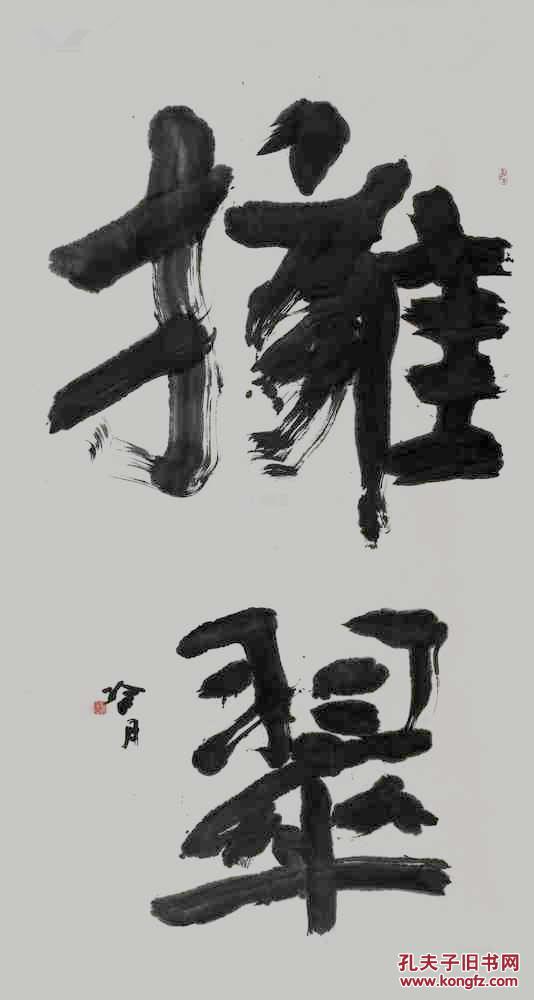 擁翠
孔夫子旧书网
www.kongfz.com